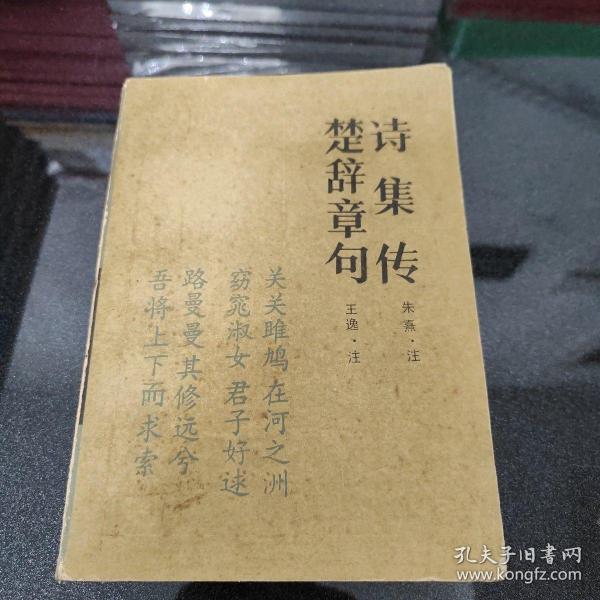 诗集传
朱熹·注
楚辞章句
王逸·注
关关雎鸠在河之洲
窈窕淑女君子好逑
路曼曼其修远兮
吾将上下而求索
孔夫子旧书网
www.kongfz.com